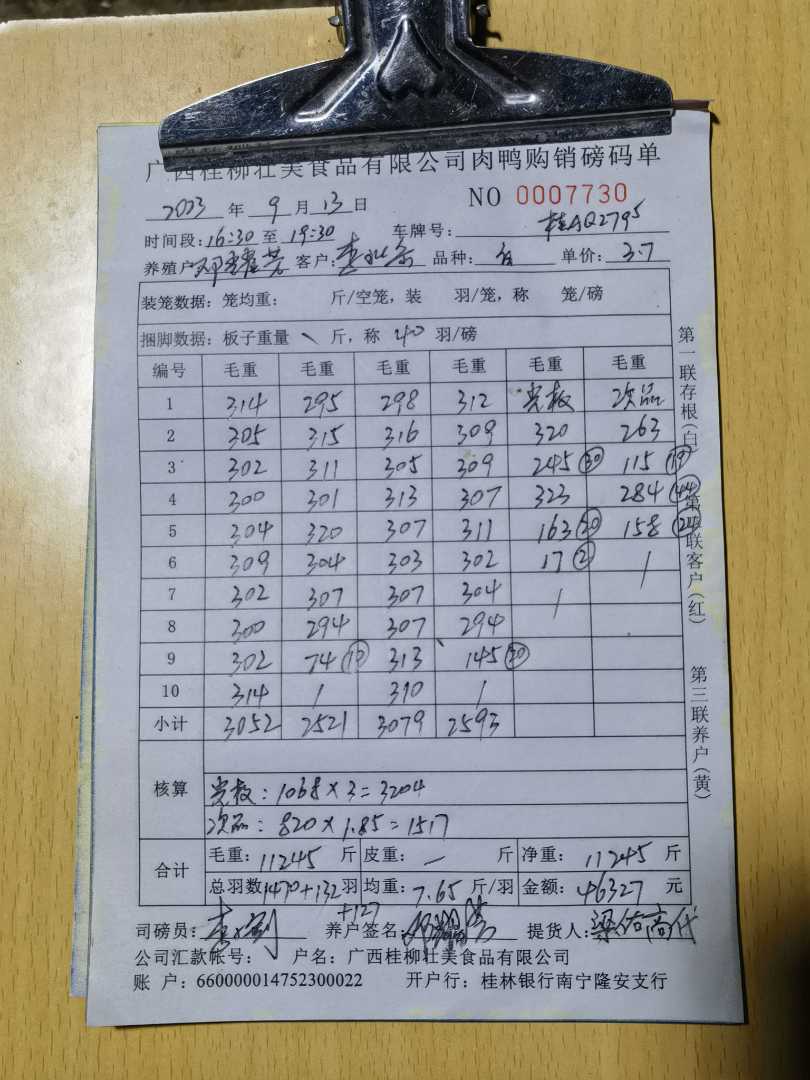 广西桂柳壮美食品有限公司肉鸭购销磅码单
2023 年 9 月 13 日 NO 0007730
时间段: 16:30 至 19:30 车牌号: 桂AQ2795
养殖户: 客户: 品种: 单价: 3.7
装笼数据: 笼均重: 斤/空笼, 装 羽/笼, 称 笼/磅
捆脚数据: 板子重量 \ 斤, 称 40 羽/磅
编号 毛重 毛重 毛重 毛重 毛重 毛重
1 314 295 298 312 光板 次品
2 305 315 316 309 320 263
3 302 311 305 309 245 (30) 115 (19)
4 300 301 313 307 323 284 (44)
5 304 320 307 311 163 (20) 158 (24)
6 309 304 303 302 17 (2) /
7 302 307 307 304 /
8 300 294 307 294
9 302 74 (10) 313 145 (20)
10 314 / 310 /
小计 3052 2521 3079 2593
核算
光板: 1068 × 3 = 3204
次品: 820 × 1.85 = 1517
合计 毛重: 11245 斤 皮重: — 斤 净重: 11245 斤
总羽数 1470+132 羽 均重: 7.65 斤/羽 金额: 46327 元
+127
司磅员: 养户签名: 提货人:
公司汇款帐号: 户名: 广西桂柳壮美食品有限公司
账 户: 660000014752300022 开户行: 桂林银行南宁隆安支行
第一联存根(白) 第二联客户(红) 第三联养户(黄)